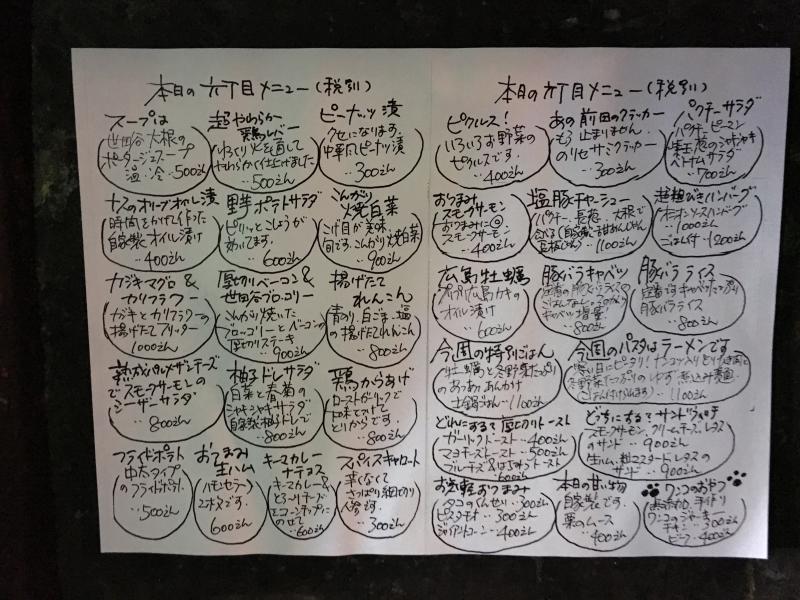 本日の六丁目メニュー(税別)
スープは
世田谷大根の
ポタージュスープ
温・冷 ‥500えん
超やわらか
鶏レバー
じっくり火を通して
やわらかく仕上げました
‥500えん
ピーナッツ漬
クセになります。
中華風ピーナッツ漬
‥300えん
ナスのオリーブオイル漬
時間をかけて作った
自家製オイル漬け
‥400えん
野生ポテトサラダ
ピリッとこしょうが
効いてます。
‥600えん
こんがり
焼白菜
こげ目が美味
旬です。こんがり焼白菜
‥900えん
カジキマグロ&
カリフラワー
カジキとカリフラワーの
揚げたてフリッター
1000えん
厚切りベーコン&
世田谷ブロッコリー
こんがり焼いた
ブロッコリーとベーコンの
厚切りステーキ
‥900えん
揚げたて
れんこん
青のり、白ごま、塩
の揚げたてれんこん
‥800えん
熟成パルメザンチーズ
でスモークサーモンの
シーザーサラダ
‥800えん
柚子ドレサラダ
白菜と春菊の
シャキシャキサラダ
自家製柚子ドレで
‥800えん
鶏からあげ
ローストガーリックで
下味をつけた
とりからです。
‥800えん
フライドポテト
中太タイプ
のフライドポテト。
‥500えん
おてまみ
生ハム
ハモンセラーノ
2ホメです。
600えん
キーマカレー
ナチョス
キーマカレー&
とろ〜りチーズ
をコーンチップに
のせて
‥600えん
スパイスキャロット
辛くなくて
さっぱり細切り
人参です。
‥300えん
本日の六丁目メニュー(税別)
ピクルス!
いろいろお野菜の
ピクルスです。
‥400えん
あの前田のクラッカー
もう止まりません。
のりセサミクラッカー
‥300えん
パクチーサラダ
パクチー、ピーマン
ベトナムサラダ
‥700えん
おつまみ
スモークサーモン
おつまみに◎
スモークサーモン
‥400えん
塩豚チャーシュー
パクチー、長葱、大根で
食べる(自家製・甜めんじゃん
‥1100えん
超粗びきハンバーグ
オニオンソースハンバーグ
‥1000えん
ごはん付‥1200えん
広島牡蠣
プリプリ広島カキの
オイル漬け
‥600えん
豚バラキャベツ
キャベツ増量!
‥800えん
豚バラライス
定番ですキャベツたっぷり
豚バラライス
‥800えん
今週の特別ごはん
牡蠣と冬野菜たっぷり
のあつあつあんかけ
土鍋ごはん‥1100えん
今週のパスタはラーメンです
寒い日にピッタリ!
冬野菜たっぷりの
‥1100えん
どれにするで厚切りトースト
ガーリックトースト‥400えん
マヨチーズトースト‥500えん
ブルーチーズ&はちみつトースト
‥600えん
どっちにするでサンドウィッチ
スモークサーモン、クリームチーズ、レタス
のサンド‥900えん
生ハム、粒マスタード、レタスの
サンド‥900えん
お気軽おつまみ
タコのくんせい‥300えん
ピスタチオ‥300えん
ジャイアントコーン‥400えん
本日の甘い物
自家製です。
栗のムース
‥400えん
ワンコのおやつ
無添加、手作り
ワンコのジャーキー
チキン‥300えん
ビーフ‥400えん